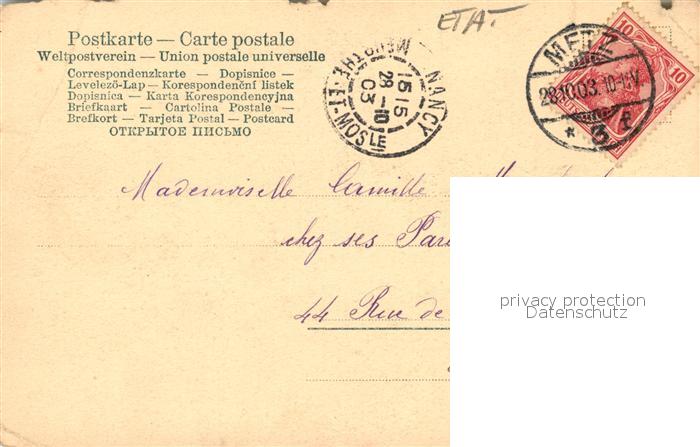 ETAT
Postkarte — Carte postale
Weltpostverein — Union postale universelle
Correspondenzkarte – Dopisnice –
Levelező-Lap – Korespondenční listek
Dopisnica – Karta Korespondencyjna
Briefkaart – Cartolina Postale –
Brefkort – Tarjeta Postal – Postcard
ОТКРЫТОЕ ПИСЬМО
NANCY
MEURTHE-ET-MOSLE
15 15
28-10
03
METZ
28.10.03. 10-11V.
* 3 t
10 10
Mademoiselle Camille
chez ses
44 Rue de
privacy protection
Datenschutz